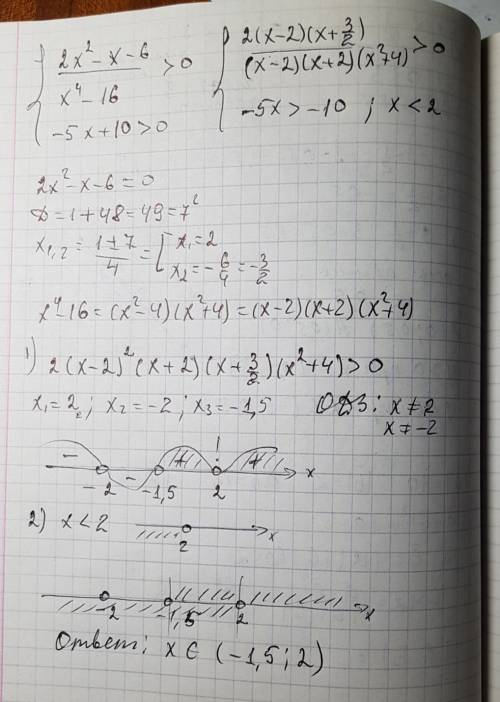 { (2x² - x - 6)/(x⁴ - 16) > 0
-5x + 10 > 0
{ 2(x-2)(x+3/2)/((x-2)(x+2)(x²+4)) > 0
-5x > -10 ; x < 2
2x² - x - 6 = 0
D = 1 + 48 = 49 = 7²
x₁,₂ = (1±7)/4 = [ x₁ = 2
x₂ = -6/4 = -3/2
x⁴-16 = (x²-4)(x²+4) = (x-2)(x+2)(x²+4)
1) 2(x-2)²(x+2)(x+3/2)(x²+4) > 0
x₁ = 2 ; x₂ = -2 ; x₃ = -1,5 ОДЗ: x ≠ 2
x ≠ -2
- - + +
-2 -1,5 2 x
2) x < 2
2 x
-2 -1,5 2 x
Ответ: x ∈ (-1,5 ; 2)